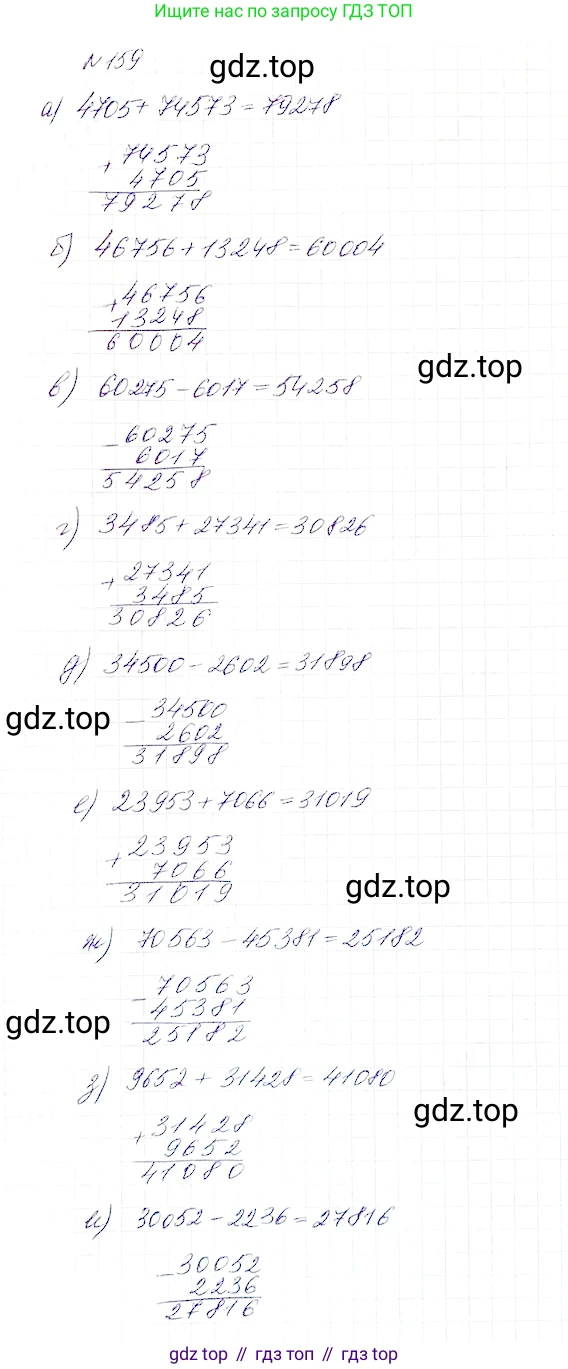 Ищите нас по запросу ГДЗ ТОП
№159
gdz.top
а) 4705 + 74573 = 79278
+ 74573
4705
79278
б) 46756 + 13248 = 60004
+ 46756
13248
60004
gdz.top
в) 60275 - 6017 = 54258
- 60275
6017
54258
г) 3485 + 27341 = 30826
+ 27341
3485
30826
д) 34500 - 2602 = 31898
gdz.top
- 34500
2602
31898
е) 23953 + 7066 = 31019
+ 23953
7066
31019
gdz.top
ж) 70563 - 45381 = 25182
- 70563
45381
25182
gdz.top
з) 9652 + 31428 = 41080
gdz.top
+ 31428
9652
41080
и) 30052 - 2236 = 27816
- 30052
2236
27816
gdz.top // гдз топ // gdz top